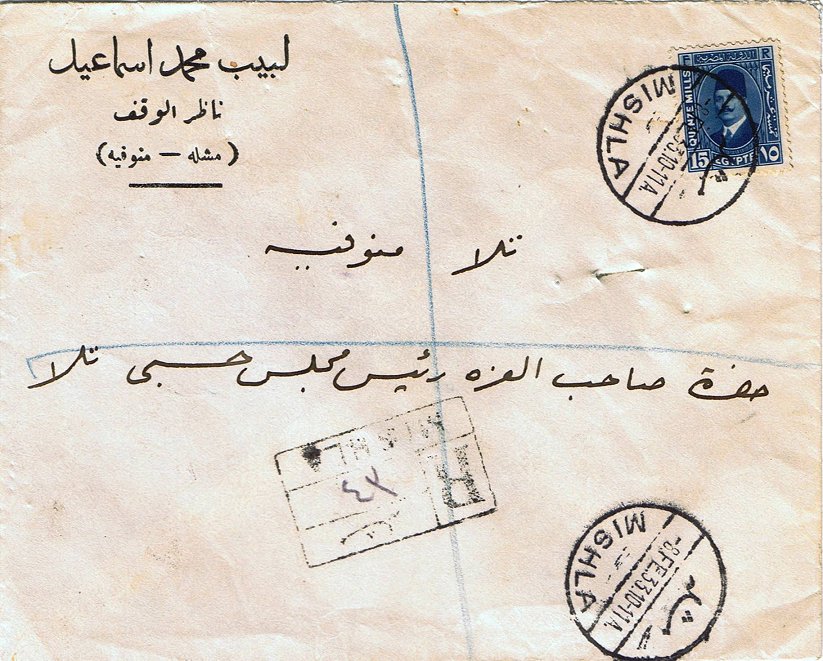 لبيب محمد اسماعيل
ناظر الوقف
(مشله — منوفيه)
F R
QUINZE MILLS
15 EGYPTE ١٥
MISHLA
33.10-11A.
تلا منوفيه
حضرة صاحب العزه رئيس مجلس حسبى تلا
MISHLA
R
٤٢
MISHLA
-8.FE.33.10-11A.
مشله